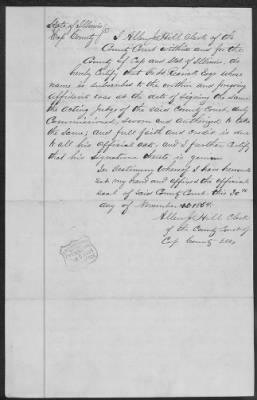 State of Illinois
Cass County
I Allen J Hill Clerk of the
County Court within and for the
County of Cass and State of Illinois, do
hereby Certify that Esqr whose
name is subscribed to the within and foregoing
Affidavit was at the date of signing the same
the acting Judge of the said County Court duly
Commissioned, sworn and authorized to take
the same; and full faith and credit is due
to all his official acts, and I further Certify
that his signature thereto is genuine
In testimony whereof I have hereunto
set my hand and affixed the official
seal of said County Court this 30th
day of November 1864.
Allen J Hill Clerk
of the County Court of
Cass County Ills